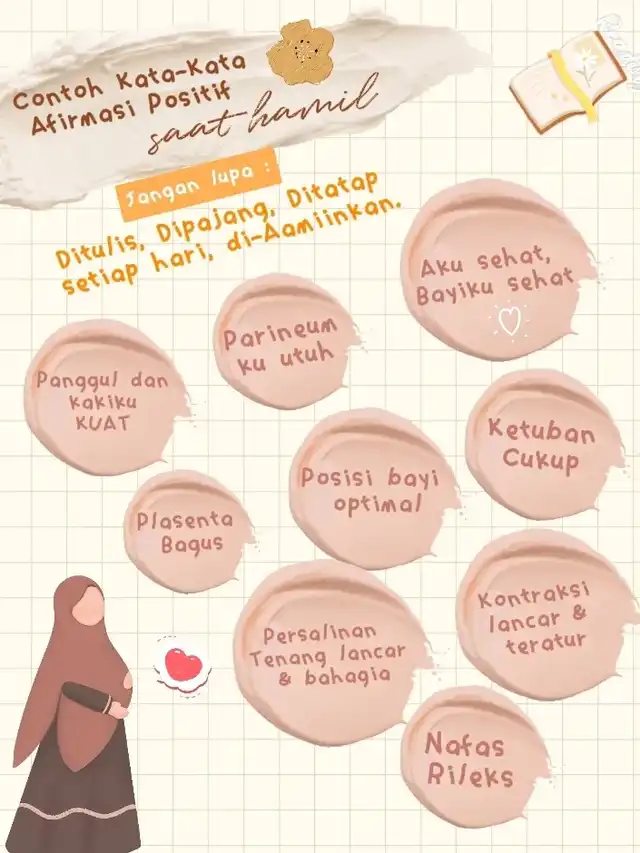 Contoh Kata-Kata
Afirmasi Positif
saat hamil
Jangan lupa :
Ditulis, Dipajang, Ditatap
setiap hari, di-Aamiinkan.
Aku sehat,
Bayiku sehat
Parineum
ku utuh
Panggul dan
kakiku
KUAT
Ketuban
Cukup
Posisi bayi
optimal
Plasenta
Bagus
Kontraksi
lancar &
teratur
Persalinan
Tenang lancar
& bahagia
Nafas
Rileks